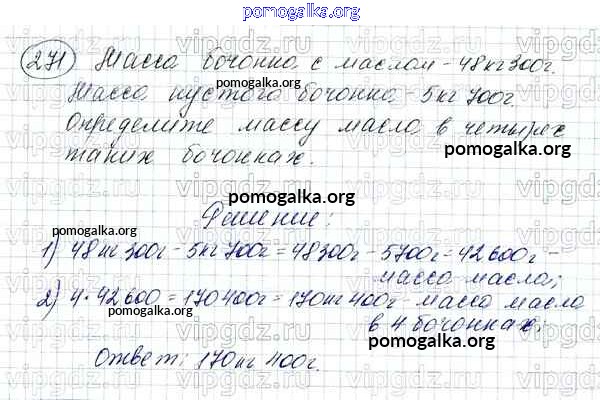 pomogalka.org
271 Масса бочонка с маслом - 48кг300г.
pomogalka.org
Масса пустого бочонка - 5кг 700г.
Определите массу масла в четырёх
pomogalka.org
таких бочонках.
pomogalka.org
Решение:
pomogalka.org
1) 48кг 300г - 5кг 700г = 48300г - 5700г = 42600г -
масса масла;
2) 4 · 42600 = 170400г = 170кг 400г - масса масла
pomogalka.org
в 4 бочонках.
pomogalka.org
Ответ: 170кг 400г.
vipgdz.ru